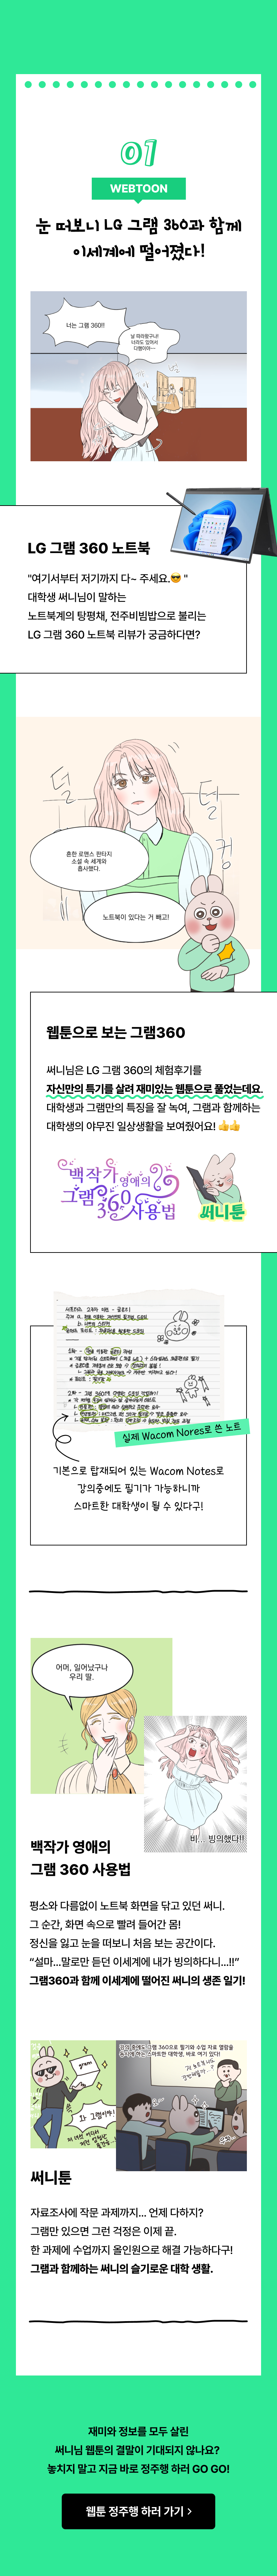 01
WEBTOON
눈 떠보니 LG 그램 360과 함께
이세계에 떨어졌다!
너는 그램 360!!
날 따라왔구나!
너라도 있어서
다행이야…
LG 그램 360 노트북
"여기서부터 저기까지 다~ 주세요.😎 "
대학생 써니님이 말하는
노트북계의 탕평채, 전주비빔밥으로 불리는
LG 그램 360 노트북 리뷰가 궁금하다면?
덜
덜
컹
흔한 로맨스 판타지
소설 속 세계와
흡사했다.
노트북이 있다는 거 빼고!
웹툰으로 보는 그램360
써니님은 LG 그램 360의 체험후기를
자신만의 특기를 살려 재미있는 웹툰으로 풀었는데요.
대학생과 그램만의 특징을 잘 녹여, 그램과 함께하는
대학생의 야무진 일상생활을 보여줬어요! 👍👍
백작가 영애의
그램 360 사용법
써니툰
실제 Wacom Nores로 쓴 노트
기본으로 탑재되어 있는 Wacom Notes로
강의중에도 필기가 가능하니까
스마트한 대학생이 될 수 있다구!
어머, 일어났구나
우리 딸.
비... 빙의했다!!
백작가 영애의
그램 360 사용법
평소와 다름없이 노트북 화면을 닦고 있던 써니.
그 순간, 화면 속으로 빨려 들어간 몸!
정신을 잃고 눈을 떠보니 처음 보는 공간이다.
“설마...말로만 듣던 이세계에 내가 빙의하다니...!!”
그램360과 함께 이세계에 떨어진 써니의 생존 일기!
gram
와 그램이다!
써니툰
자료조사에 작문 과제까지... 언제 다하지?
그램만 있으면 그런 걱정은 이제 끝.
한 과제에 수업까지 올인원으로 해결 가능하다구!
그램과 함께하는 써니의 슬기로운 대학 생활.
재미와 정보를 모두 살린
써니님 웹툰의 결말이 기대되지 않나요?
놓치지 말고 지금 바로 정주행 하러 GO GO!
웹툰 정주행 하러 가기 >